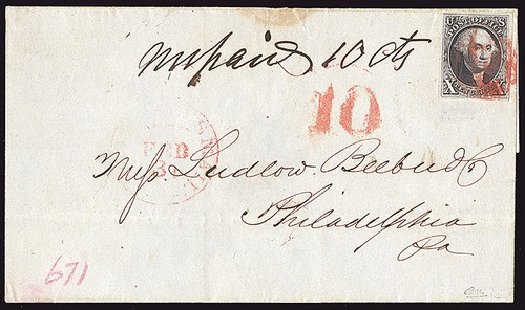 unpaid 10 cts
POST OFFICE
10
Messrs Ludlow Beebe & Co
Philadelphia
Pa
671